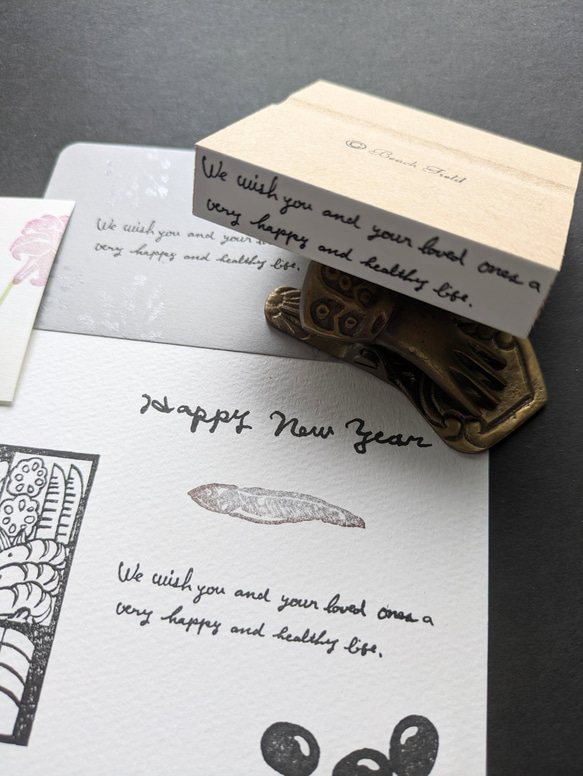 © Beach Field
We wish you and your loved ones a
very happy and healthy life.
We wish you and your
very happy and healthy life.
Happy New Year
We wish you and your loved ones a
very happy and healthy life.